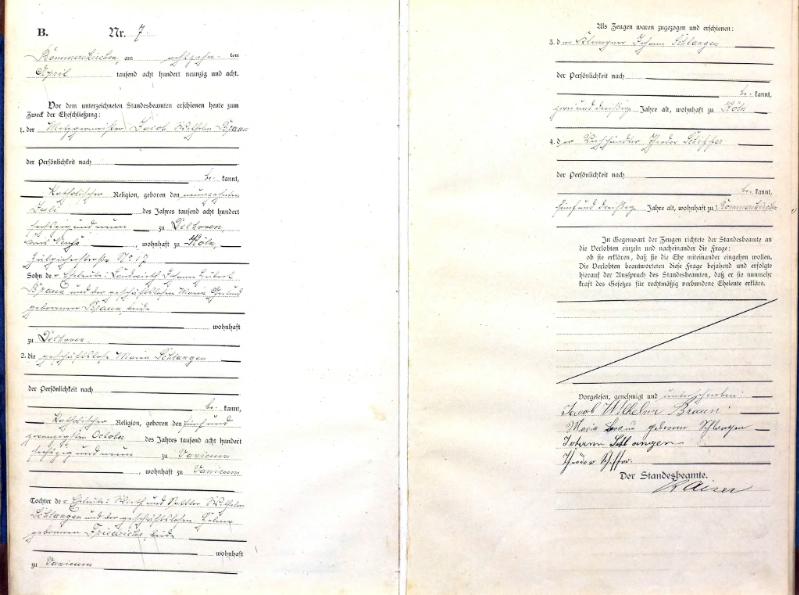 B. Nr. 7
Rommerskirchen, am achtzehn ten
April tausend acht hundert neunzig und acht.
Vor dem unterzeichneten Standesbeamten erschienen heute zum
Zweck der Eheschließung:
1. der Metzgermeister Jacob Wilhelm Braun
der Persönlichkeit nach
be kannt,
katholischer Religion, geboren den neunzehnten
Juli des Jahres tausend acht hundert
sechszig und neun zu Delhoven,
, wohnhaft zu Köln,
Zülpicherstraße No 17
Sohn der Eheleute: Landwirth Johann Hubert
Braun und der geschäftslosen Maria
geborenen Braun, beide
wohnhaft
zu Delhoven
2. die geschäftslose Maria Schlangen
der Persönlichkeit nach
be kannt,
katholischer Religion, geboren den fünf und
zwanzigsten October des Jahres tausend acht hundert
sechszig und neun zu Vanicum
, wohnhaft zu Vanicum
Tochter der Eheleute: Wirth und Wilhelm
Schlangen und der geschäftslosen
geborenen beide
wohnhaft
zu Vanicum
Als Zeugen waren zugezogen und erschienen:
3. der Johann Schlangen
der Persönlichkeit nach
be kannt,
zwei und dreißig Jahre alt, wohnhaft zu Köln
4. der Theodor
der Persönlichkeit nach
be kannt,
fünf und dreißig Jahre alt, wohnhaft zu Rommerskirchen
In Gegenwart der Zeugen richtete der Standesbeamte an
die Verlobten einzeln und nacheinander die Frage:
ob sie erklären, daß sie die Ehe miteinander eingehen wollen.
Die Verlobten beantworteten diese Frage bejahend und erfolgte
hierauf der Ausspruch des Standesbeamten, daß er sie nunmehr
kraft des Gesetzes für rechtmäßig verbundene Eheleute erkläre.
Vorgelesen, genehmigt und unterschrieben:
Jacob Wilhelm Braun
Maria Braun geborene Schlangen
Johann Schlangen
Theodor
Der Standesbeamte.
Kaiser